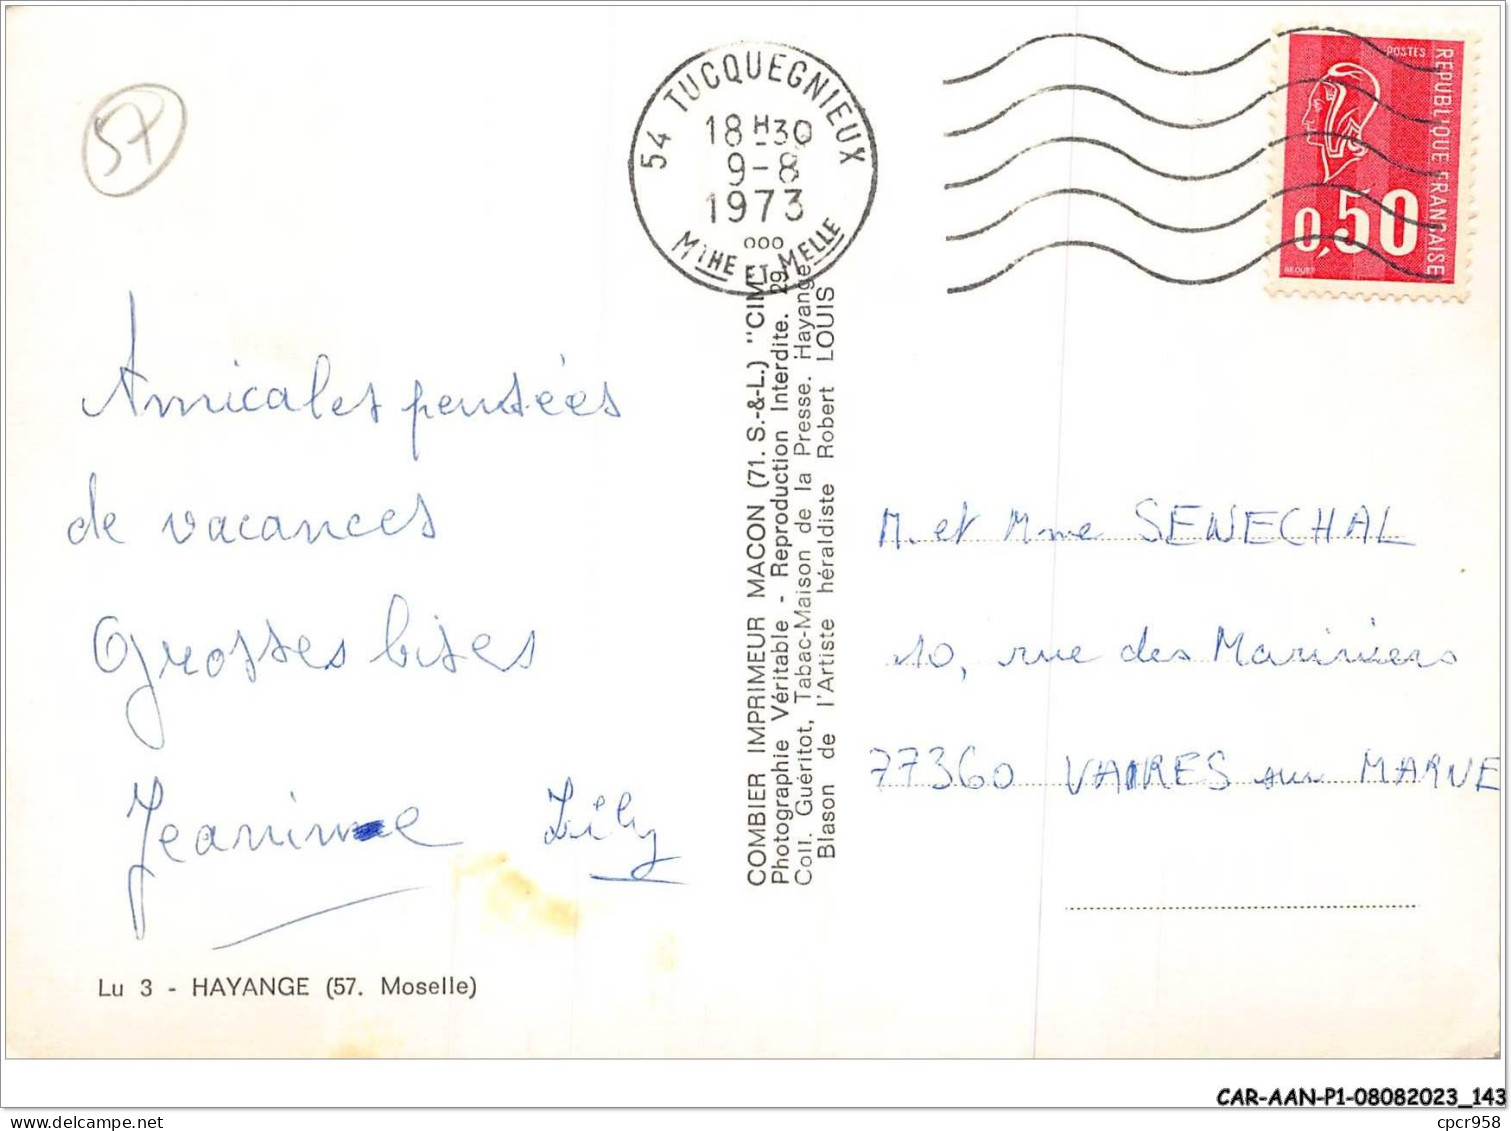 57
54 TUCQUEGNIEUX
18 H30
9-8
1973
MTHE ET MELLE
POSTES
REPUBLIQUE FRANCAISE
0,50
BEQUET
Amicales pensées
de vacances
Grosses bises
Jeanine Lily
Lu 3 - HAYANGE (57. Moselle)
COMBIER IMPRIMEUR MACON (71. S.-&-L.) "CIM
Photographie Véritable - Reproduction Interdite. 29
Coll. Guéritot, Tabac-Maison de la Presse. Hayange
Blason de l'Artiste héraldiste Robert LOUIS
M. et Mme SENECHAL
10, rue des Mariniers
77360 VAIRES sur MARNE
CAR-AAN-P1-08082023_143
www.delcampe.net
cpcr958